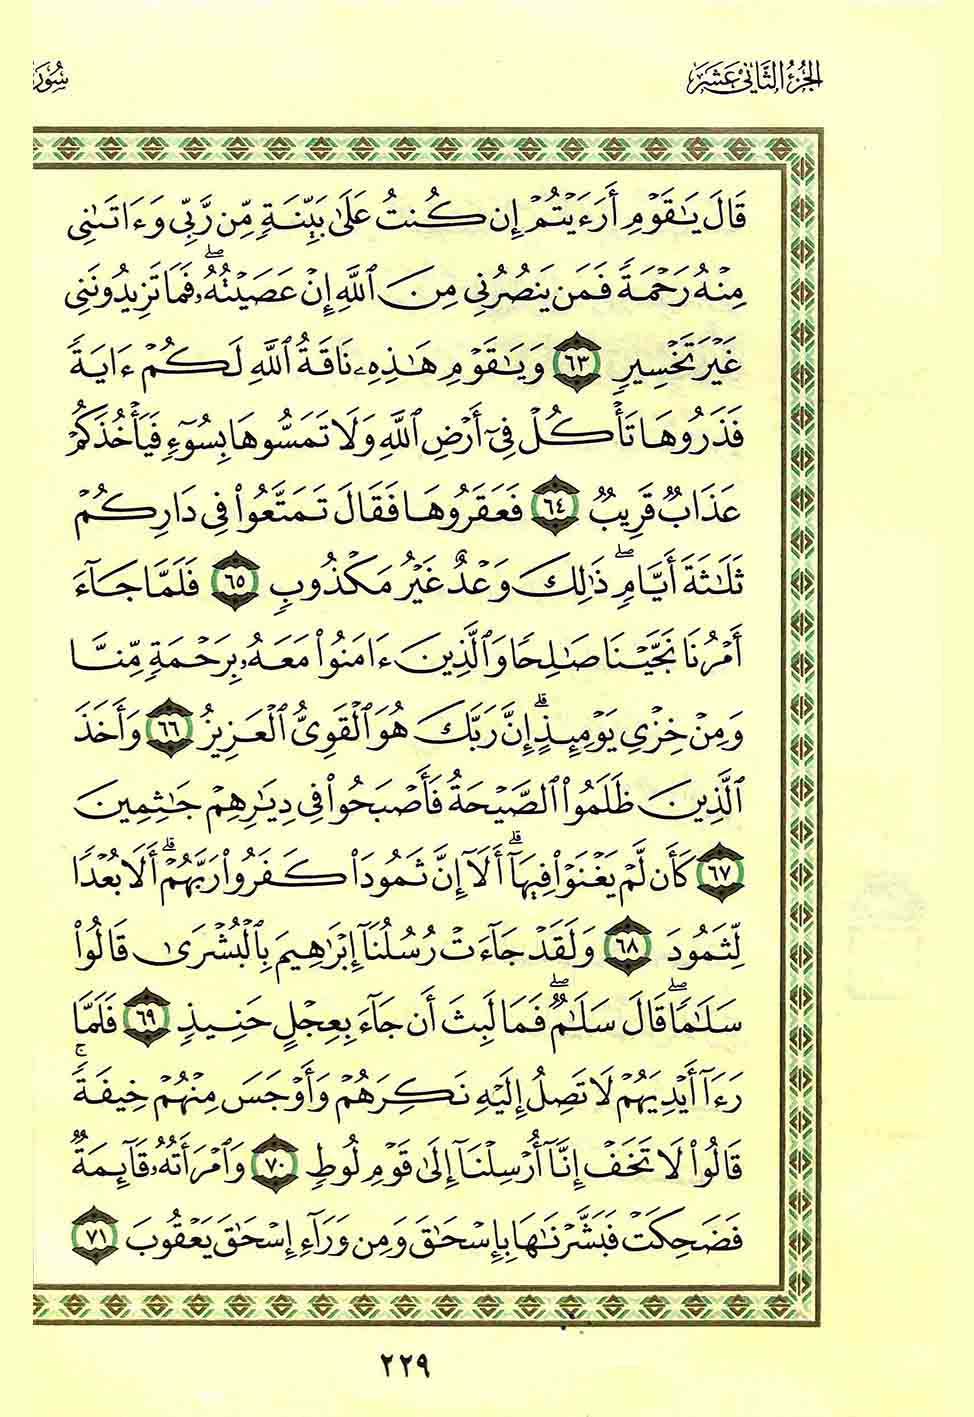 الجزء الثاني عشر
سور
قَالَ يَٰقَوْمِ أَرَءَيْتُمْ إِن كُنتُ عَلَىٰ بَيِّنَةٍ مِّن رَّبِّى وَءَاتَىٰنِى
مِنْهُ رَحْمَةً فَمَن يَنصُرُنِى مِنَ ٱللَّهِ إِنْ عَصَيْتُهُۥ ۖ فَمَا تَزِيدُونَنِى
غَيْرَ تَخْسِيرٍ ٦٣ وَيَٰقَوْمِ هَٰذِهِۦ نَاقَةُ ٱللَّهِ لَكُمْ ءَايَةً
فَذَرُوهَا تَأْكُلْ فِىٓ أَرْضِ ٱللَّهِ وَلَا تَمَسُّوهَا بِسُوٓءٍ فَيَأْخُذَكُمْ
عَذَابٌ قَرِيبٌ ٦٤ فَعَقَرُوهَا فَقَالَ تَمَتَّعُوا۟ فِى دَارِكُمْ
ثَلَٰثَةَ أَيَّامٍ ۖ ذَٰلِكَ وَعْدٌ غَيْرُ مَكْذُوبٍ ٦٥ فَلَمَّا جَآءَ
أَمْرُنَا نَجَّيْنَا صَٰلِحًا وَٱلَّذِينَ ءَامَنُوا۟ مَعَهُۥ بِرَحْمَةٍ مِّنَّا
وَمِنْ خِزْىِ يَوْمِئِذٍ ۗ إِنَّ رَبَّكَ هُوَ ٱلْقَوِىُّ ٱلْعَزِيزُ ٦٦ وَأَخَذَ
ٱلَّذِينَ ظَلَمُوا۟ ٱلصَّيْحَةُ فَأَصْبَحُوا۟ فِى دِيَٰرِهِمْ جَٰثِمِينَ
٦٧ كَأَن لَّمْ يَغْنَوْا۟ فِيهَآ ۗ أَلَآ إِنَّ ثَمُودَا۟ كَفَرُوا۟ رَبَّهُمْ ۗ أَلَا بُعْدًا
لِّثَمُودَ ٦٨ وَلَقَدْ جَآءَتْ رُسُلُنَآ إِبْرَٰهِيمَ بِٱلْبُشْرَىٰ قَالُوا۟
سَلَٰمًا ۖ قَالَ سَلَٰمٌ ۖ فَمَا لَبِثَ أَن جَآءَ بِعِجْلٍ حَنِيذٍ ٦٩ فَلَمَّا
رَءَآ أَيْدِيَهُمْ لَا تَصِلُ إِلَيْهِ نَكِرَهُمْ وَأَوْجَسَ مِنْهُمْ خِيفَةً ۚ
قَالُوا۟ لَا تَخَفْ إِنَّآ أُرْسِلْنَآ إِلَىٰ قَوْمِ لُوطٍ ٧٠ وَٱمْرَأَتُهُۥ قَآئِمَةٌ
فَضَحِكَتْ فَبَشَّرْنَٰهَا بِإِسْحَٰقَ وَمِن وَرَآءِ إِسْحَٰقَ يَعْقُوبَ ٧١
٢٢٩